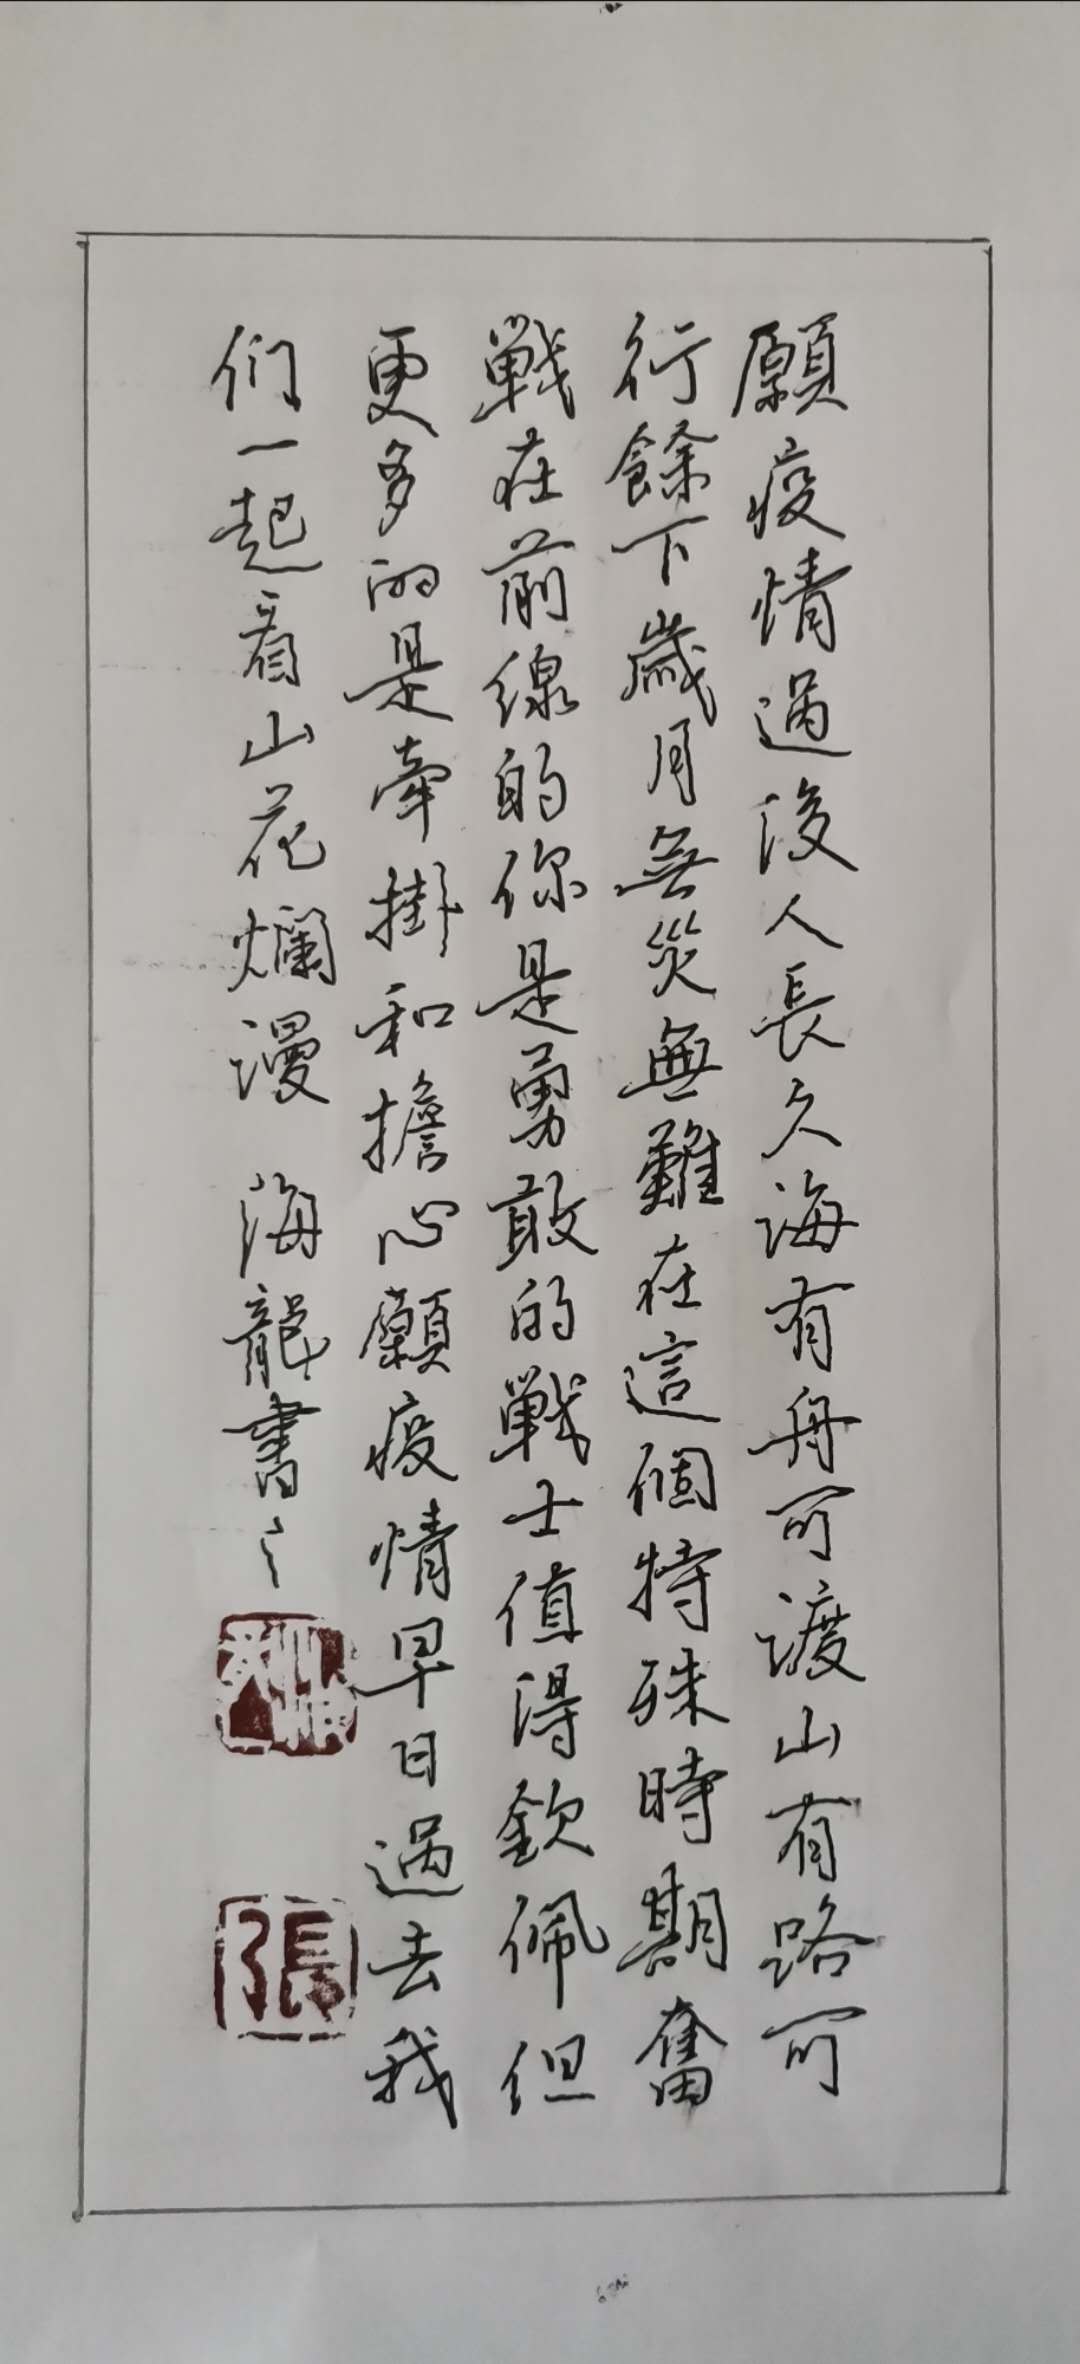 願疫情過後人長久海有舟可渡山有路可
行餘下歲月無災無難在這個特殊時期奮
戰在前線的你是勇敢的戰士值得欽佩但
更多的是牽掛和擔心願疫情早日過去我
们一起看山花爛漫 海龍書之
張